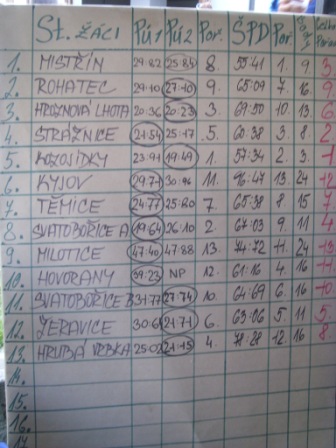 ST. ŽÁCI PÚ1 PÚ2 POŘ. ŠPD POŘ.
1. MISTŘÍN 29.82 25.84 8. 55:41 1. 9. 3.
2. ROHATEC 29.10 27.10 9. 65:09 7. 16. 9.
3. HROZNOVÁ LHOTA 20.36 20.23 3. 69.50 10. 13. 6.
4. STRÁŽNICE 21.54 25.17 5. 60.38 3. 8. 2.
5. KOZOJÍDKY 23.91 19.49 1. 57:34 2. 3. 1.
6. KYJOV 29.71 30.96 11. 96:47 13. 24 12.
7. TEMICE 24.77 25.20 7. 65.38 8. 15 7.
8. SVATOBOŘICE A 19.64 26.10 2. 67.03 9. 11 4.
9. MILOTICE 47.40 47.88 13. 74:72 11. 24
10. HOVORANY 39.23 NP 12. 61.16 4. 16
11. SVATOBOŘICE B 31.77 27.74 10. 64.69 6. 16 10.
12. ŽERAVICE 30.61 21.71 6. 63.06 5. 11 5.
13. HRUBÁ VRBKA 25.02 21.15 4. 78:28 12. 16 8.
14.
15.
16.
17.